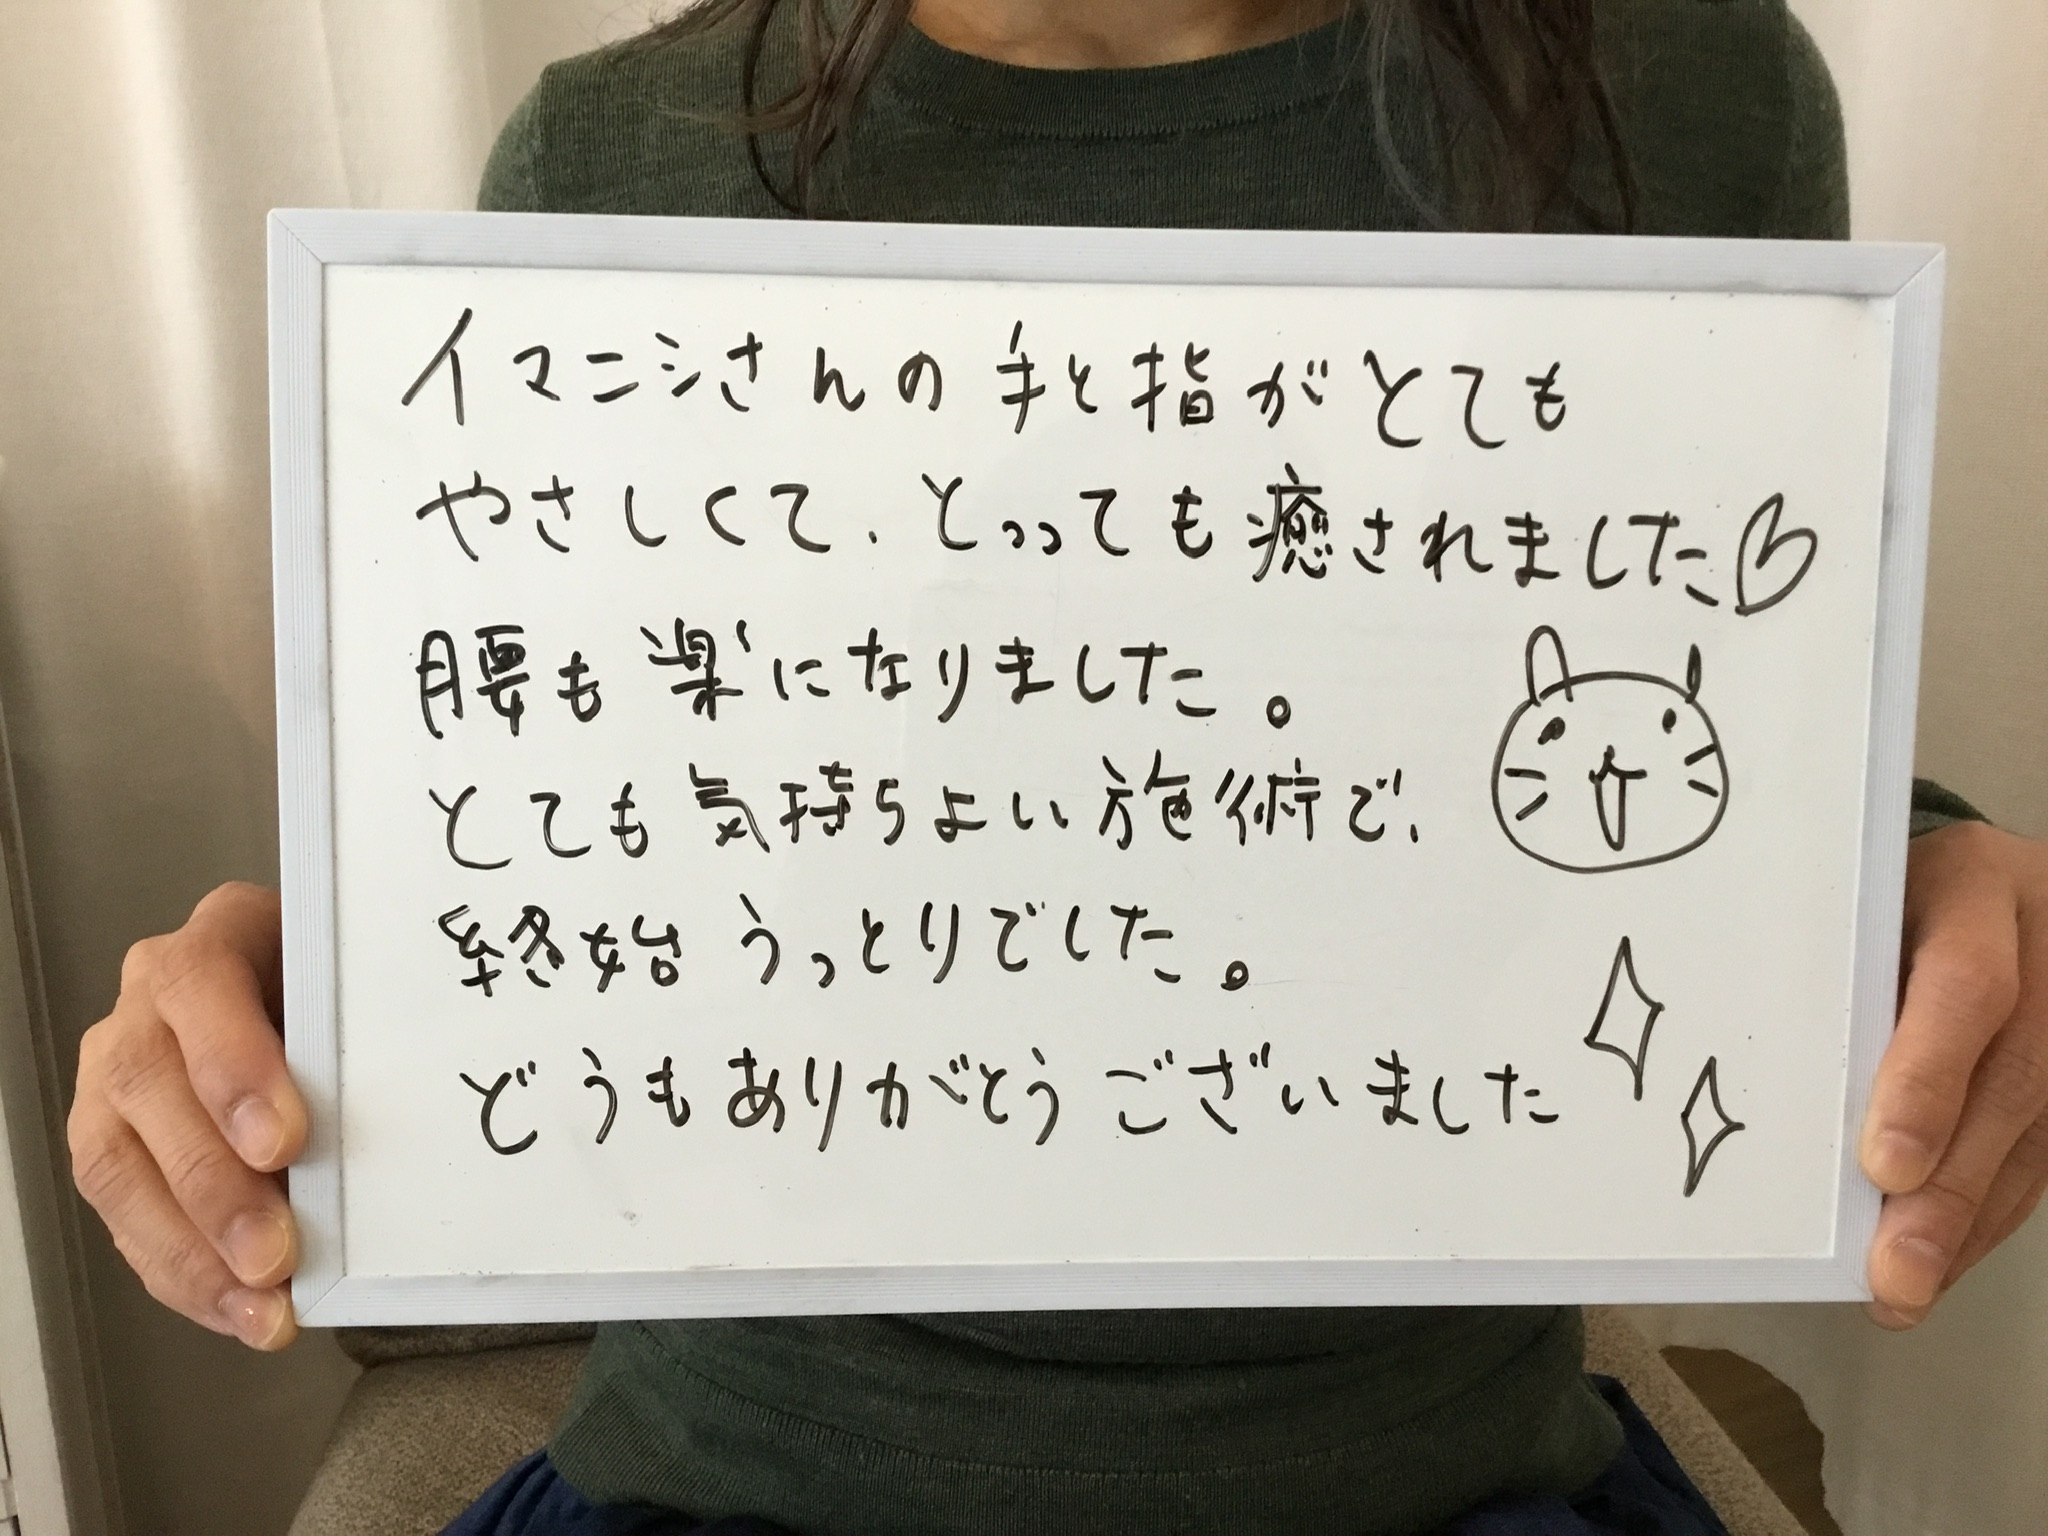 イマニシさんの手と指がとても
やさしくて、とっっても癒されました♡
腰も楽になりました。
とても気持ちよい施術で、
終始うっとりでした。
どうもありがとうございました